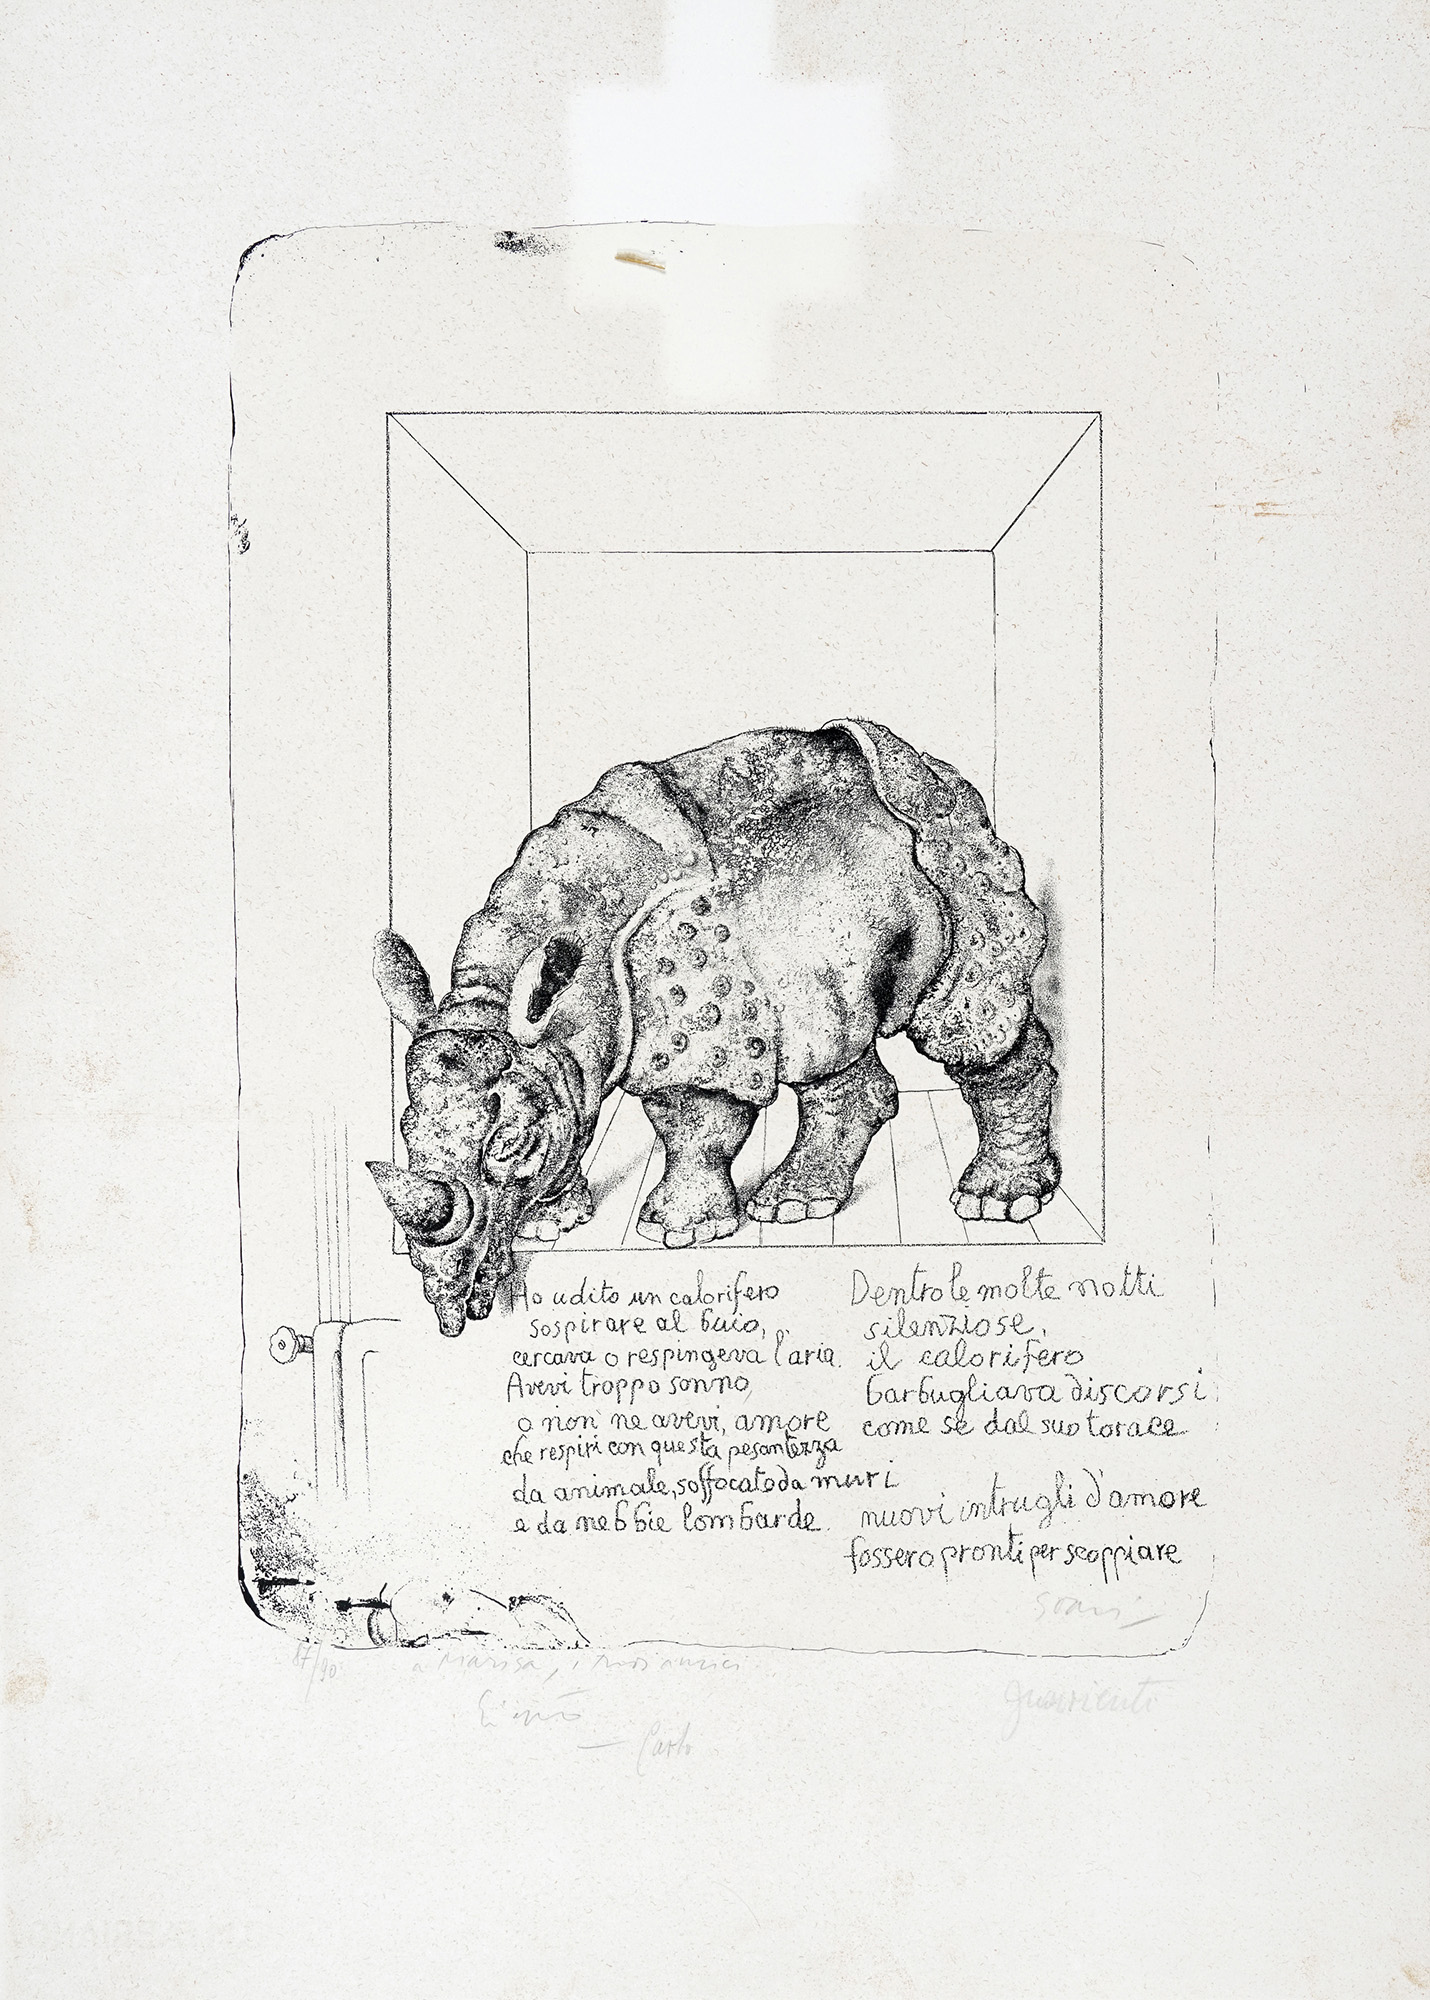 Ho udito un calorifero
sospirare al buio,
cercava o respingeva l'aria.
Avevi troppo sonno,
o non ne avevi, amore
che respiri con questa pesantezza
da animale, soffocato da muri
e da nebbie lombarde.
Dentro le molte notti
silenziose,
il calorifero
barbugliava discorsi
come se dal suo torace
nuovi intrugli d'amore
fossero pronti per scoppiare
87/90
a Marisa, i
Carlo
guarienti